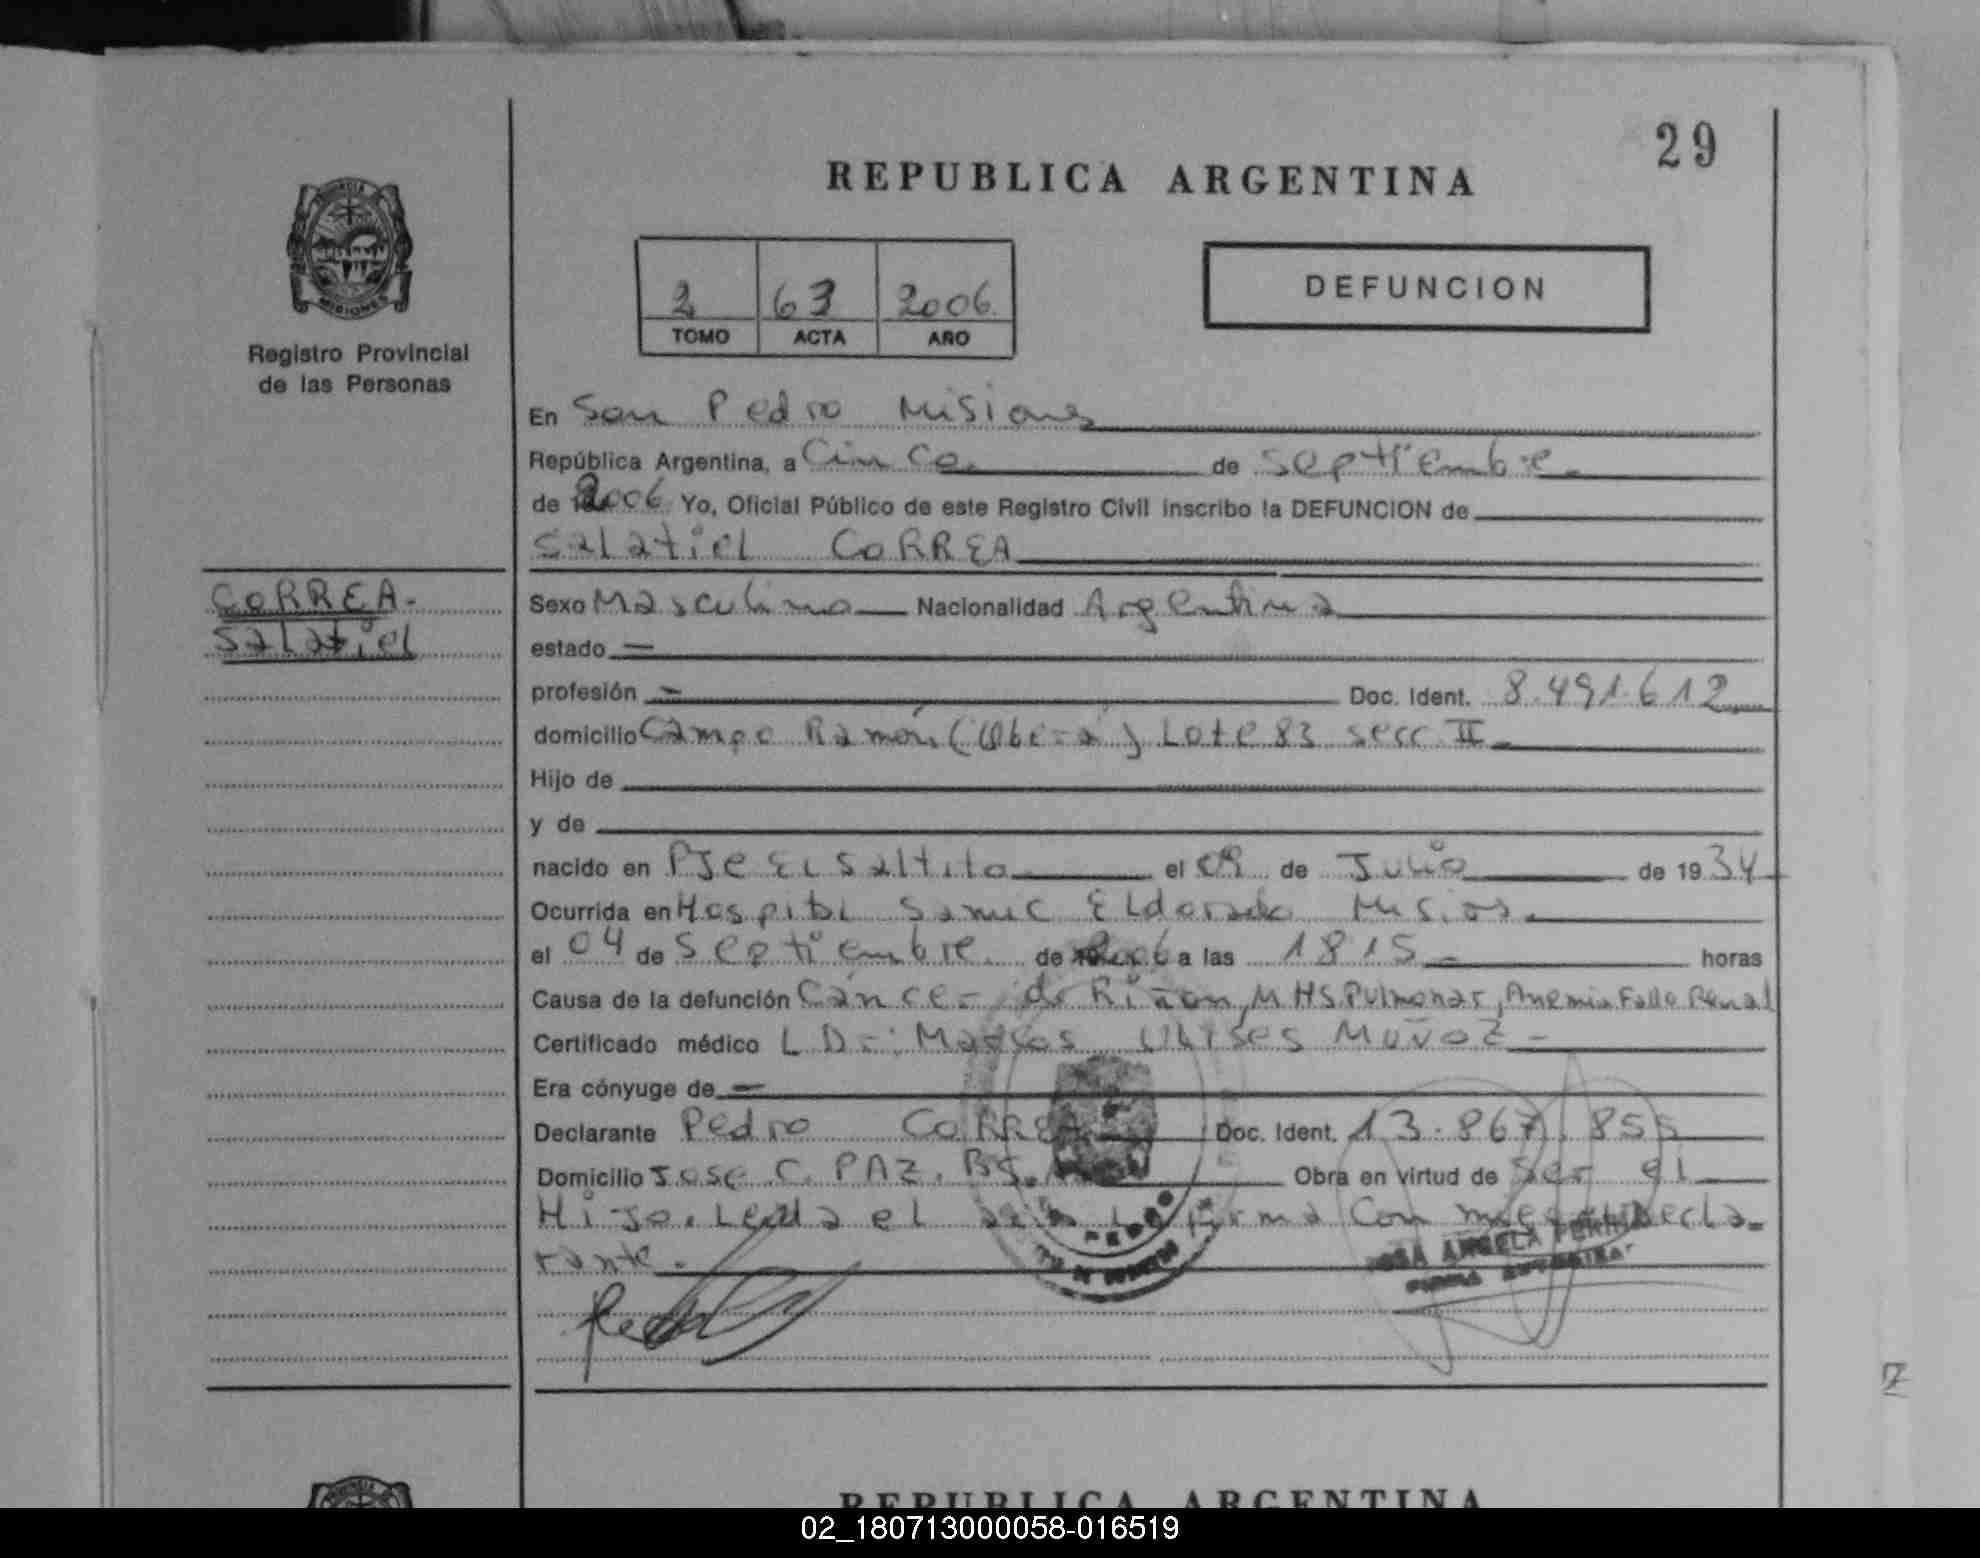 29
REPUBLICA ARGENTINA
2 63 2006
TOMO ACTA AÑO
DEFUNCION
MISIONES
Registro Provincial
de las Personas
En San Pedro Misiones
República Argentina, a Cinco de septiembre
de 2006 Yo, Oficial Público de este Registro Civil inscribo la DEFUNCION de
Salatiel CORREA
CORREA.
Salatiel
Sexo Masculino Nacionalidad Argentina
estado —
profesión — Doc. Ident. 8.491.612
domicilio Campo Ramón (Oberá) Lote 83 secc II
Hijo de
y de
nacido en PJe El Saltito el 09 de Julio de 1934
Ocurrida en Hospital Samic Eldorado
el 04 de Septiembre de 2006 a las 1815 horas
Causa de la defunción Cáncer de Riñon, M HS. Pulmonar, Anemia Falla Renal
Certificado médico Dr. Marcos Ulises MUÑOZ -
Era cónyuge de —
Declarante Pedro CORREA Doc. Ident. 13.867.855
Domicilio Jose C. PAZ. Bs. Obra en virtud de Ser el
Hijo. Leida el acta la firma Con migo el Decla-
rante.
ROSA ANGELA
REPUBLICA ARGENTINA
02_180713000058-016519